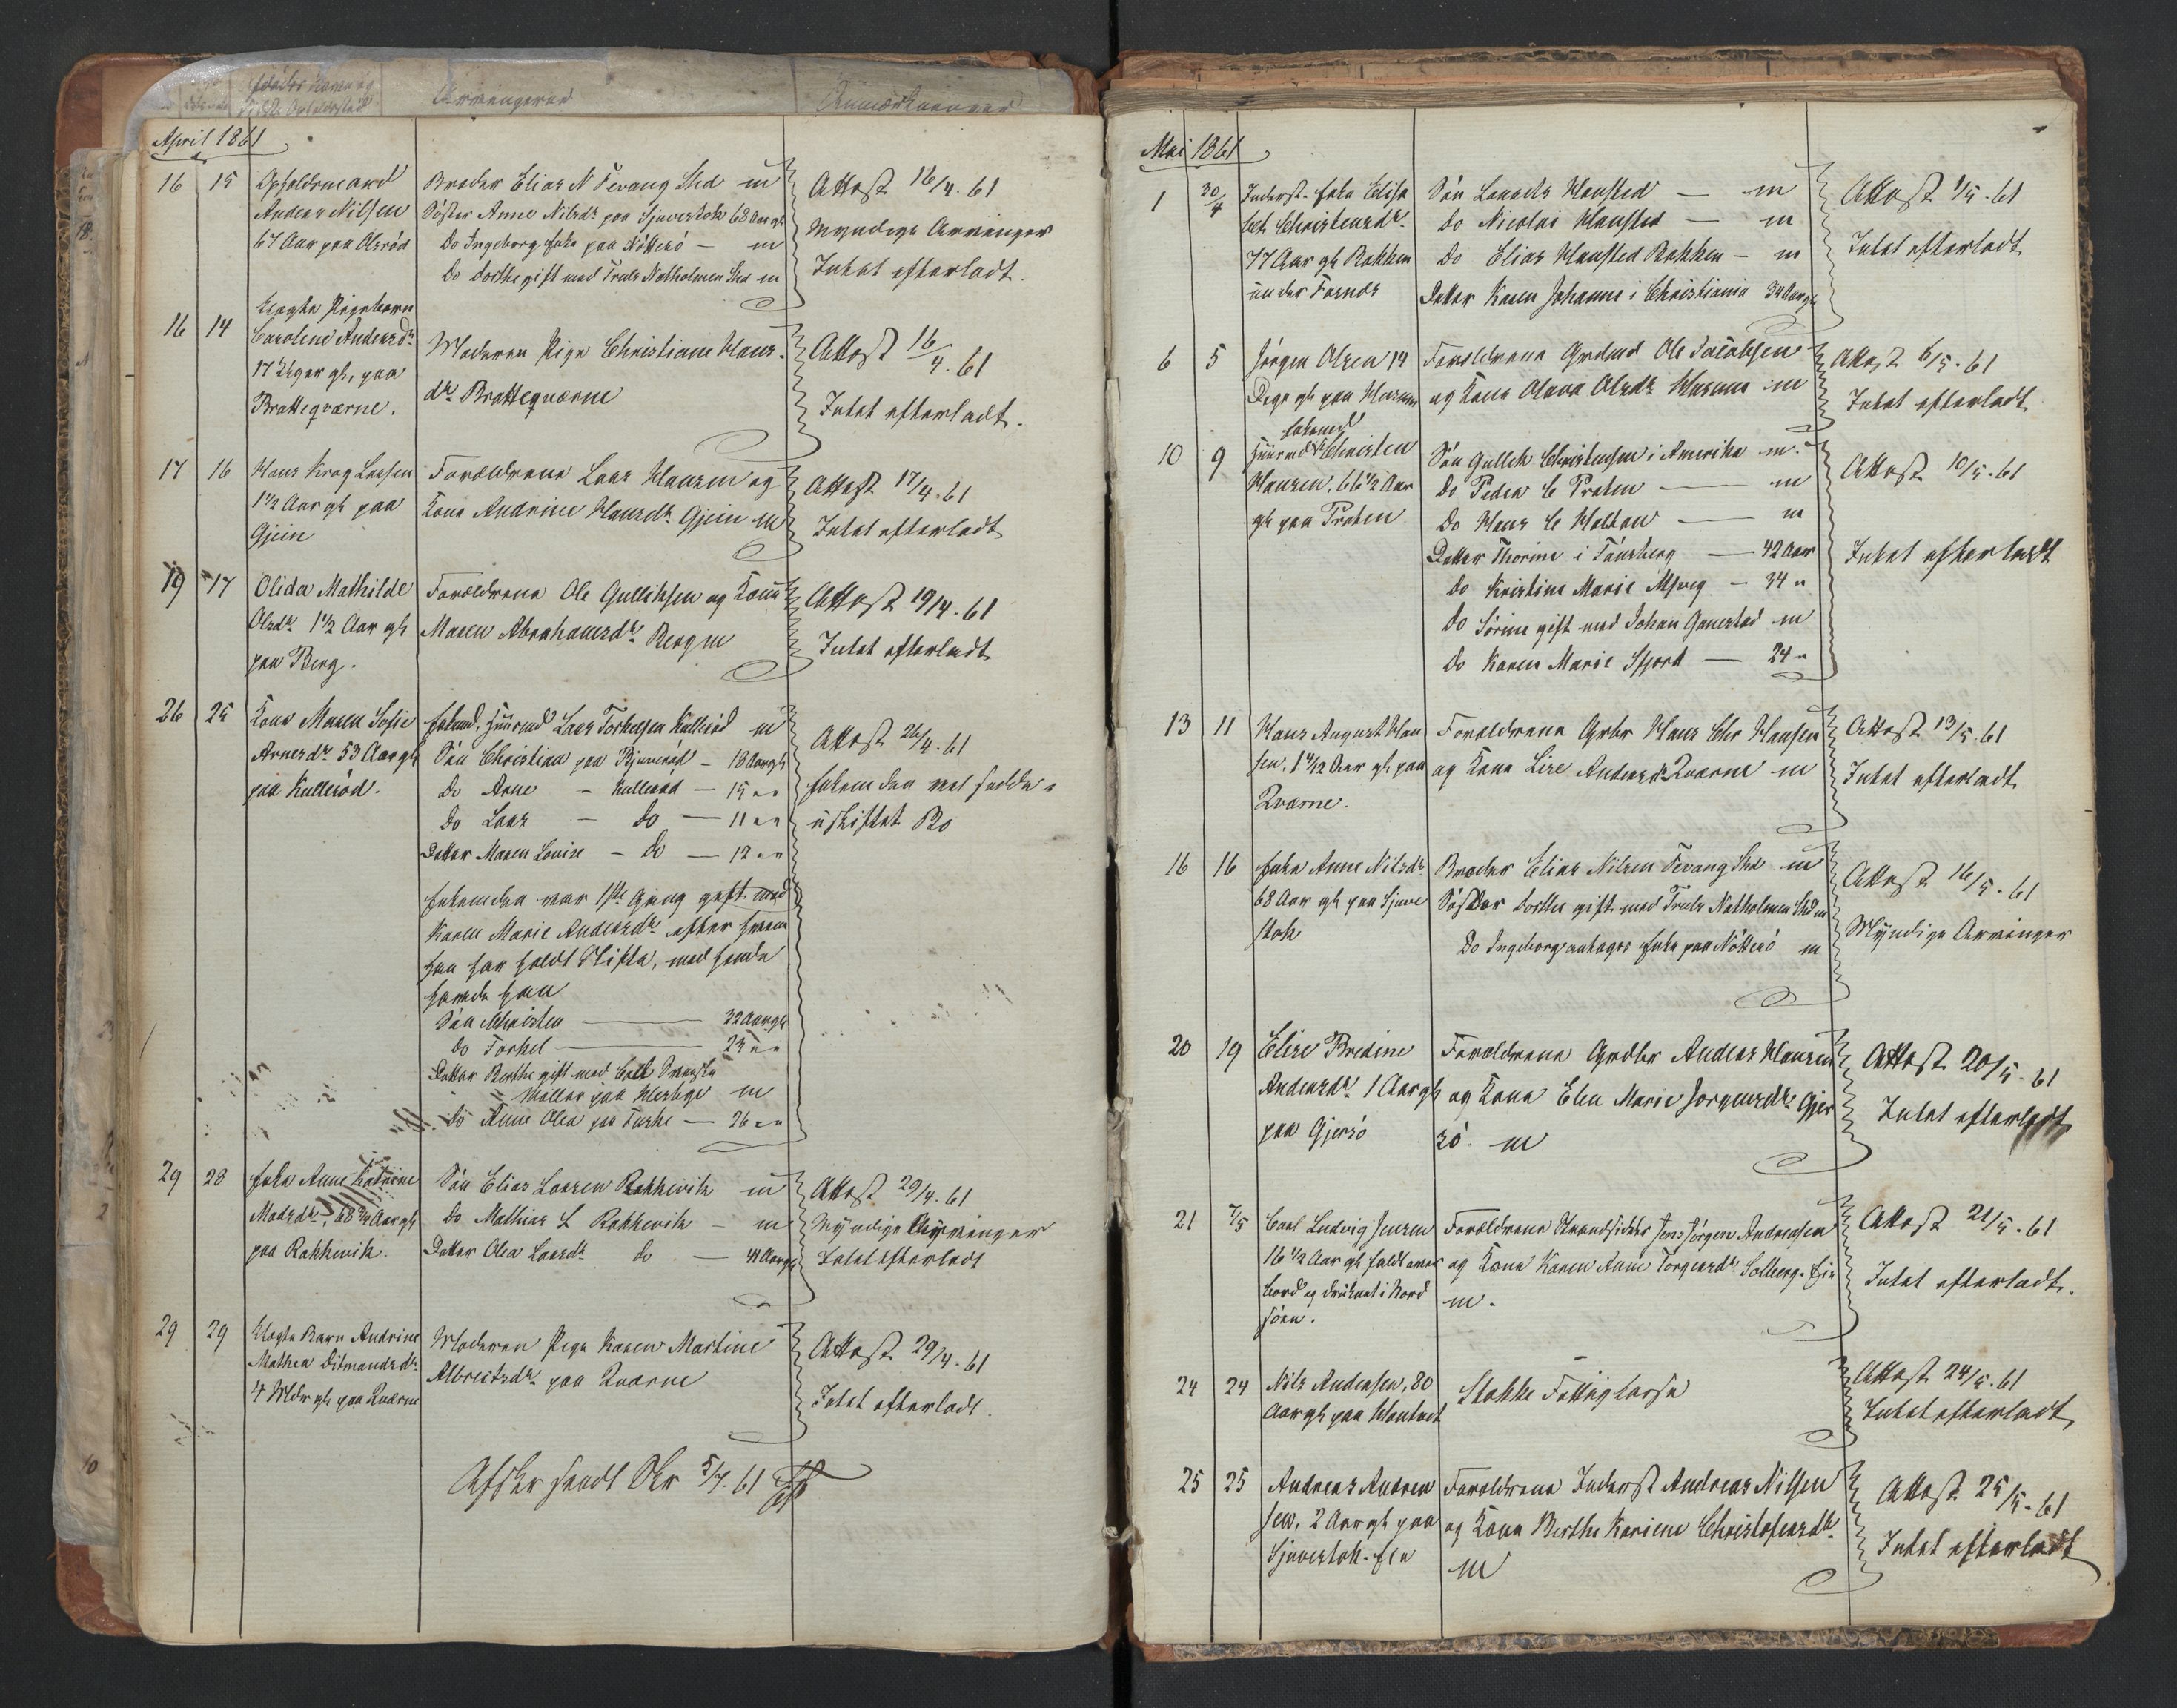 April 1861
16 15 Opholdsmand
Anders Nilsen
67 Aar paa Olsrød
Broder Elias N Fevang Shd m
Søster Anne Nilsdr paa Sjuestok 68 Aar gl
Do Ingeborg Enke paa Nötterö - m
Do Dorthe gift med Truls Natholmen Shd m
Attest 16/4. 61
Myndige Arvinger
Intet efterladt.
16 14 Uægte Pigebarn
Caroline Andersdr
17 Uger gl. paa
Bratteqværne.
Moderen Pige Christiane Hans-
dr Bratteqværne
Attest 16/4. 61
Intet efterladt.
17 16 Hans Krog Larsen
1 1/2 Aar gl paa
Gjein
Forældrene Lars Hansen og
Kone Andrine Hansdr Gjein m
Attest 17/4. 61
Intet efterladt
19 17 Olida Mathilde
Olsdr 1 1/2 Aar gl
paa Berg.
Forældrene Ole Gulliksen og Kone
Maren Abrahamsdr Berg m
Attest 19/4. 61
Intet efterladt
26 25 Kone Maren Sofie
Arnesdr 53 Aar gl
paa Kullerød.
Enkemd, Huusmd Lars Torkelsen Kullerød m
Søn Christian paa Bjuerød - 18 Aar gl
Do Arne - Kullerød - 15 " "
Do Lars - Do - 11 " "
Datter Maren Lovise - Do - 12 " "
Enkemden var 1ste Gang gift med
Karen Marie Andersdr efter hvem
han har holdt Skifte, med hende
havde han
Søn Christen 32 Aar gl
Do Torkel 23 " "
Datter Berthe gift med
Møller paa m
Do Anne Olea paa - 26 " "
Attest 26/4. 61
Enkemden vel sidde i
uskiftet Bo
29 28 Enke Anne Katrine
Madsdr, 68 3/4 Aar gl
paa Rakkevik.
Søn Elias Larsen Rakkevik m
Do Mathias L Rakkevik - m
Datter Olea Larsdr Do - 41 Aar gl
Attest 29/4. 61
Myndige Arvinger
Intet efterladt
29 29 Uægte Barn Andrine
Mathea Ditmandsdr
4 Mdr gl paa Qværne
Moderen Pige Karen Martine
Albretsdr paa Qværne
Attest 29/4. 61
Intet efterladt.
Afskr sendt Skr 5/7. 61
Mai 1861
1 30/4 Inderst-Enke Elisa
beth Christensdr
77 Aar gl Rakken
under Fornes
Søn Laurits Hansted - m
Do Nicolai Hansted - m
Do Elias Hansted Rakken - m
Datter Karen Johanne i Christiania 34 Aar gl
Attest 1/5. 61
Intet efterladt
6 5 Jörgen Olsen 14
Dage gl paa Husum
Forældrene Grdmd Ole Jacobsen
og Kone Olava Olsdr Husum m
Attest 6/5. 61
Intet efterladt
10 9 Enkemd
Huusmd Christen
Hansen, 66 1/2 Aar
gl paa Præten
Søn Gullik Christensen i Amerika m.
Do Peder C Præten - m
Do Hans C Holtan - m
Datter Thorine i Tönsberg - 42 Aar
Do Kristine Marie - 34 "
Do Sörine gift med Johan Ganerød m
Do Karen Marie - 24 "
Attest 10/5. 61
Intet efterladt
13 11 Hans August Han
sen, 1 4/12 Aar gl paa
Qværne.
Forældrene Grbr Hans Chr Hansen
og Kone Lise Andersdr Qværne m
Attest 13/5. 61
Intet efterladt
16 16 Enke Anne Nilsdr
68 Aar gl paa Sjue
stok
Broder Elias Nilsen Fevang Shd m
Søster Dorthe gift med Truls Natholmen Shd m
Do Ingeborg antages Enke paa Nötterö m
Attest 16/5. 61
Myndige Arvinger
20 19 Elise Bredine
Andersdr 1 Aar gl
paa Gjersö
Forældrene Grdbr Anders Hansen
og Kone Elen Marie Jorgensdr Gjer
sö. m
Attest 20/5. 61
Intet efterladt
21 7/5 Carl Ludvig Jensen
16 1/2 Aar gl faldt over
bord og druknet i Nord
söen.
Forældrene Strandsidder Jens Jörgen Andreassen
og Kone Karen Anne Torgersdr Solberg. Eie
m.
Attest 21/5. 61
Intet efterladt.
24 24 Nils Andersen, 80
Aar gl paa
Stokke Fattigkasse
Attest 24/5. 61
Intet efterladt
25 25 Andreas Andrea
sen, 2 Aar gl paa
Sjuestok. Eie
Forældrene Inderst Andreas Nilsen
og Kone Berthe Karine Christofersdr
m
Attest 25/5. 61
Intet efterladt